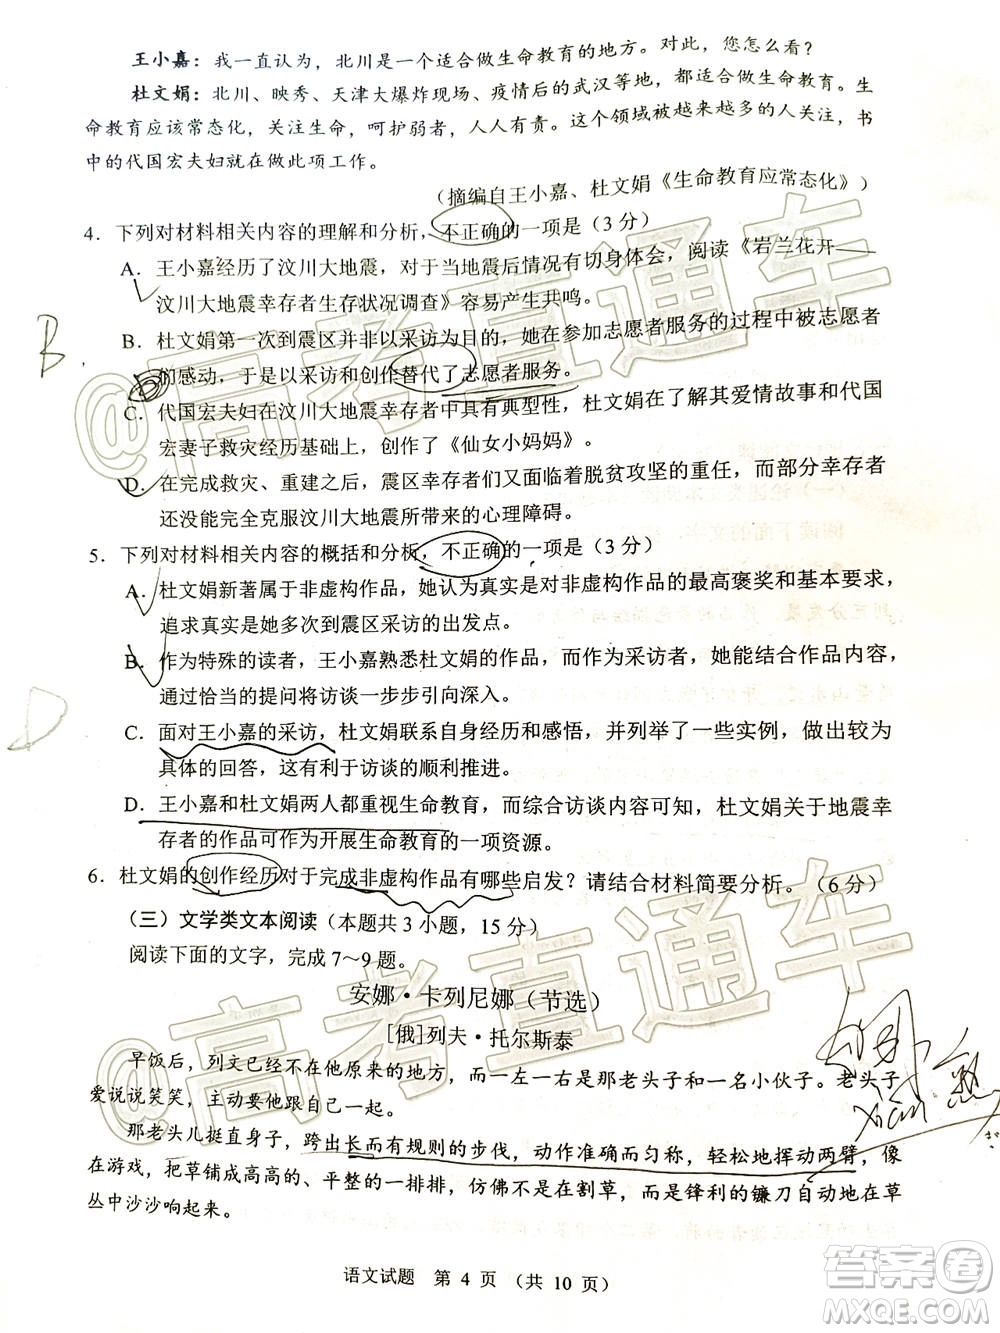 王小嘉：我一直认为，北川是一个适合做生命教育的地方。对此，您怎么看？
杜文娟：北川、映秀、天津大爆炸现场、疫情后的武汉等地，都适合做生命教育。生
命教育应该常态化，关注生命，呵护弱者，人人有责。这个领域被越来越多的人关注，书
中的代国宏夫妇就在做此项工作。
（摘编自王小嘉、杜文娟《生命教育应常态化》）
4．下列对材料相关内容的理解和分析，不正确的一项是（3 分）
A．王小嘉经历了汶川大地震，对于当地震后情况有切身体会，阅读《岩兰花开——
汶川大地震幸存者生存状况调查》容易产生共鸣。
B．杜文娟第一次到震区并非以采访为目的，她在参加志愿者服务的过程中被志愿者
的感动，于是以采访和创作替代了志愿者服务。
C．代国宏夫妇在汶川大地震幸存者中具有典型性，杜文娟在了解其爱情故事和代国
宏妻子救灾经历基础上，创作了《仙女小妈妈》。
D．在完成救灾、重建之后，震区人们又肩负着脱贫攻坚的重任，而部分幸存者
还没能完全克服汶川大地震所带来的心理障碍。
5．下列对材料相关内容的概括和分析，不正确的一项是（3 分）
A．杜文娟新著属于非虚构作品，她认为真实是对非虚构作品的最高褒奖和基本要求，
追求真实是她多次到震区采访的出发点。
B．作为特殊的读者，王小嘉熟悉杜文娟的作品，而作为采访者，她能结合作品内容，
通过恰当的提问将访谈一步步引向深入。
C．面对王小嘉的采访，杜文娟联系自身经历和感悟，并列举了一些实例，做出较为
具体的回答，这有利于访谈的顺利推进。
D．王小嘉和杜文娟两人都重视生命教育，而综合访谈内容可知，杜文娟关于地震幸
存者的作品可作为开展生命教育的一项资源。
6．杜文娟的创作经历对于完成非虚构作品有哪些启发？请结合材料简要分析。（6 分）
（三）文学类文本阅读（本题共 3 小题，15 分）
阅读下面的文字，完成 7～9 题。
安娜·卡列尼娜（节选）
[俄]列夫·托尔斯泰
早饭后，列文已经不在他原来的地方，而一左一右是那老头子和一名小伙子。老头子
爱说说笑笑，主动要求列文和自己一起。
那老头儿挺直身子，跨出长而有规则的步伐，动作准确而匀称，轻松地挥动两臂，像
在游戏，把草铺成高高的、平整的一排排，仿佛不是在割草，而是锋利的镰刀自动地在草
丛中沙沙响起来。
语文试题 第 4 页 （共 10 页）
B
D
@高考直通车
@高考直通车
答案圈
MXQE.COM